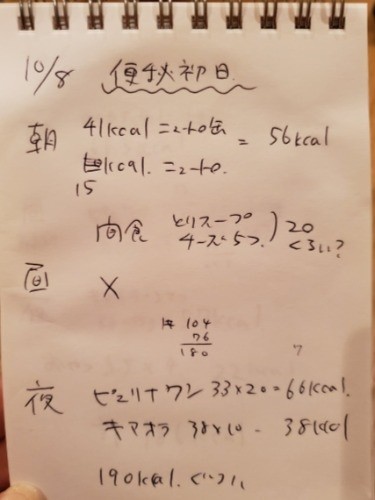 10/8 便秘初日
朝 41kcal ニュトロ缶 = 56kcal
kcal. ニュトロ.
15
間食 とりスープ 20
チーズ5つ. くらい?
昼 ×
104
76
180
7
夜 ピュリナワン 33×20=66kcal.
キアオラ 38×10 - 38kcal
190kcal. ぐらい